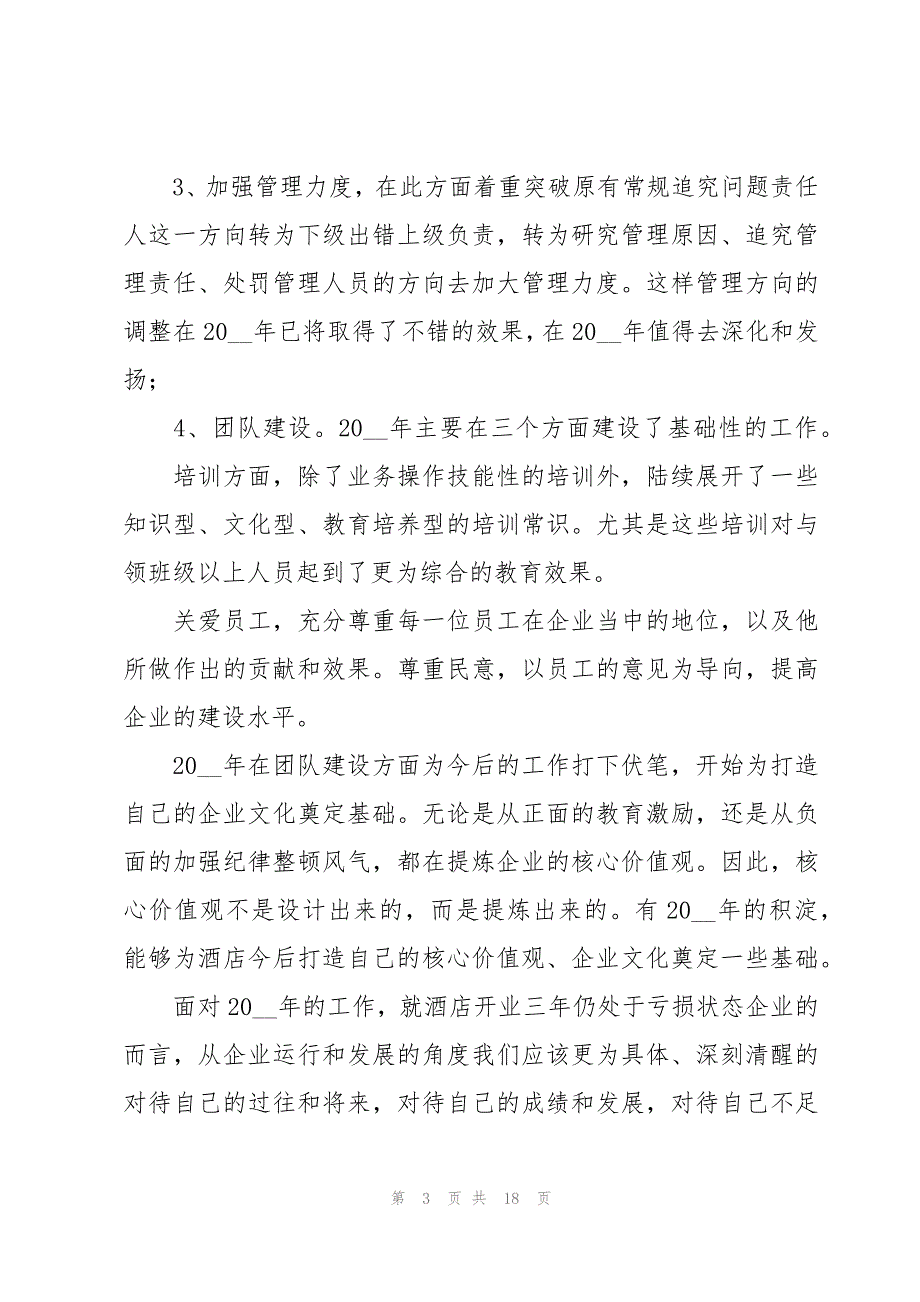 3、加强管理力度，在此方面着重突破原有常规追究问题责任
人这一方向转为下级出错上级负责，转为研究管理原因、追究管
理责任、处罚管理人员的方向去加大管理力度。这样管理方向的
调整在 20__年已将取得了不错的效果，在 20__年值得去深化和发
扬；
4、团队建设。20__年主要在三个方面建设了基础性的工作。
培训方面，除了业务操作技能性的培训外，陆续展开了一些
知识型、文化型、教育培养型的培训常识。尤其是这些培训对与
领班级以上人员起到了更为综合的教育效果。
关爱员工，充分尊重每一位员工在企业当中的地位，以及他
所做作出的贡献和效果。尊重民意，以员工的意见为导向，提高
企业的建设水平。
20__年在团队建设方面为今后的工作打下伏笔，开始为打造
自己的企业文化奠定基础。无论是从正面的教育激励，还是从负
面的加强纪律整顿风气，都在提炼企业的核心价值观。因此，核
心价值观不是设计出来的，而是提炼出来的。有 20__年的积淀，
能够为酒店今后打造自己的核心价值观、企业文化奠定一些基础。
面对 20__年的工作，就酒店开业三年仍处于亏损状态企业的
而言，从企业运行和发展的角度我们应该更为具体、深刻清醒的
对待自己的过往和将来，对待自己的成绩和发展，对待自己不足
第 3 页 共 18 页